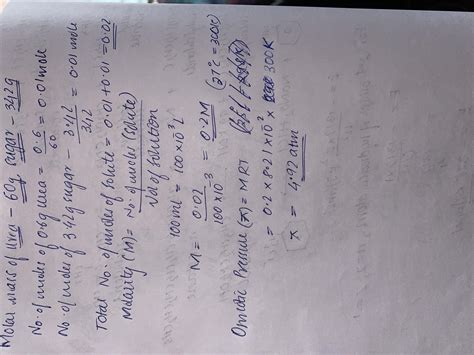 Molar mass of Urea - 60g sugar - 342g
No. of moles of 0.6g urea = 0.6/60 = 0.01 mole
No. of moles of 3.42g sugar - 3.42/342 = 0.01 mole
Total No. of moles of solute = 0.01 + 0.01 = 0.02
Molarity (M) = No. of moles (solute)/Vol of solution
100ml = 100×10⁻³L
M = 0.02/100×10⁻³ = 0.2M
Osmotic Pressure (π) = MRT (27°C = 300K)
= 0.2 × 8.21 × 10⁻² × 300K
π = 4.92 atm